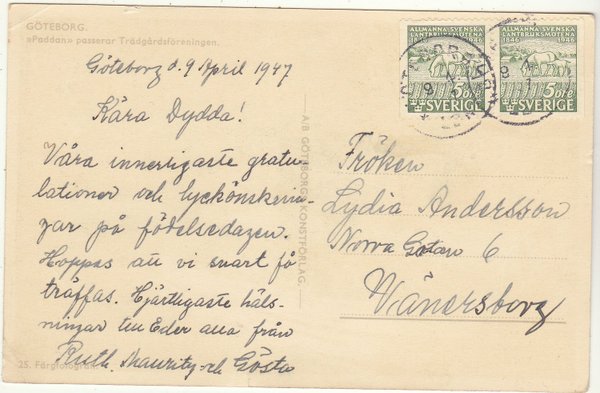 GÖTEBORG.
»Paddan» passerar Trädgårdsföreningen.
Göteborg d. 9 April 1947
Kära Dydda!
Våra innerligaste gratu-
lationer och lyckönsknin-
gar på födelsedagen.
Hoppas att vi snart få
träffas. Hjärtligaste häls-
ningar till Eder alla från
Ruth, Mauritz och Gösta
25. Färgfotografi
A/B GÖTEBORGS KONSTFÖRLAG.
ALLMÄNNA SVENSKA
LANTBRUKSMÖTENA
1846 1946
5 ÖRE
SVERIGE
ALLMÄNNA SVENSKA
LANTBRUKSMÖTENA
1846 1946
5 ÖRE
SVERIGE
Fröken
Lydia Andersson
Norra Gatan 6
Vänersborg